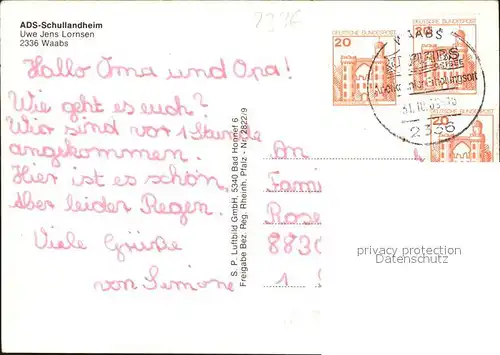 2336
ADS-Schullandheim
Uwe Jens Lornsen
2336 Waabs
Hallo Oma und Opa!
Wie geht es euch?
Wir sind vor 1 Stunde
angekommen.
Hier ist es schön,
Aber leider Regen.
Viele Grüße
von Simone
S. P. Luftbild GmbH, 5340 Bad Honnef 6
Freigabe Bez. Reg. Rheinh. Pfalz - Nr. 2822/9
DEUTSCHE BUNDESPOST
20
DEUTSCHE BUNDESPOST
20
20
WAABS
2336
An
Fami
Rose
8830
1
privacy protection
Datenschutz